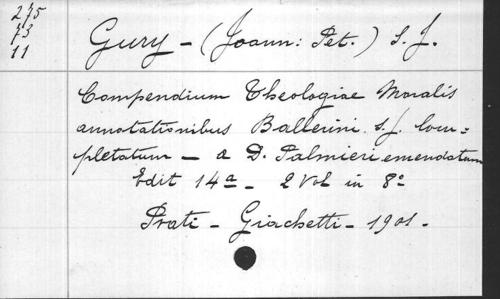 275
73
11
Gury - (Joann: Pet.) S. J.
Compendium Theologiae Moralis
annotationibus Ballerini S. J. com=
pletatum - a D. Palmieri emendatum
Edit 14a - 2 Vol in 8°
Prati - Giachetti - 1901 -